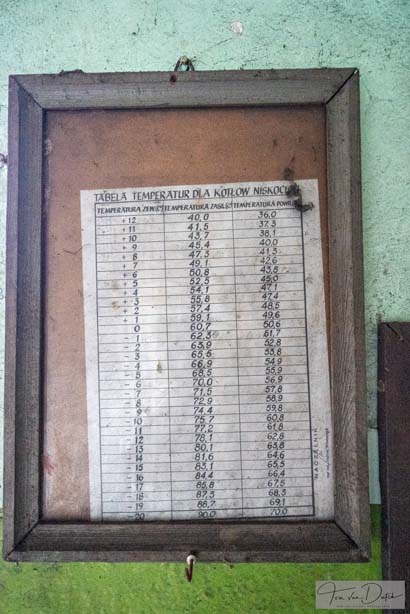 TABELA TEMPERATUR DLA KOTŁÓW NISKOCIŚ
TEMPERATURA ZEW. TEMPERATURA ZASIL. TEMPERATURA POWR.
+ 12 40,0 36,0
+ 11 41,5 37,3
+ 10 43,7 38,1
+ 9 45,4 40,0
+ 8 47,3 41,3
+ 7 49,1 42,6
+ 6 50,8 43,8
+ 5 52,5 45,0
+ 4 54,1 47,1
+ 3 55,8 47,4
+ 2 57,4 48,5
+ 1 59,1 49,6
0 60,7 50,6
- 1 62,3 51,7
- 2 63,9 52,8
- 3 65,5 53,8
- 4 66,9 54,9
- 5 68,5 55,9
- 6 70,0 56,9
- 7 71,5 57,8
- 8 72,9 58,9
- 9 74,4 59,8
- 10 75,7 60,8
- 11 77,2 61,8
- 12 78,1 62,8
- 13 80,1 63,8
- 14 81,6 64,6
- 15 83,1 65,5
- 16 84,4 66,4
- 17 85,8 67,5
- 18 87,3 68,3
- 19 88,7 69,1
- 20 90,0 70,0
NACZELNIK